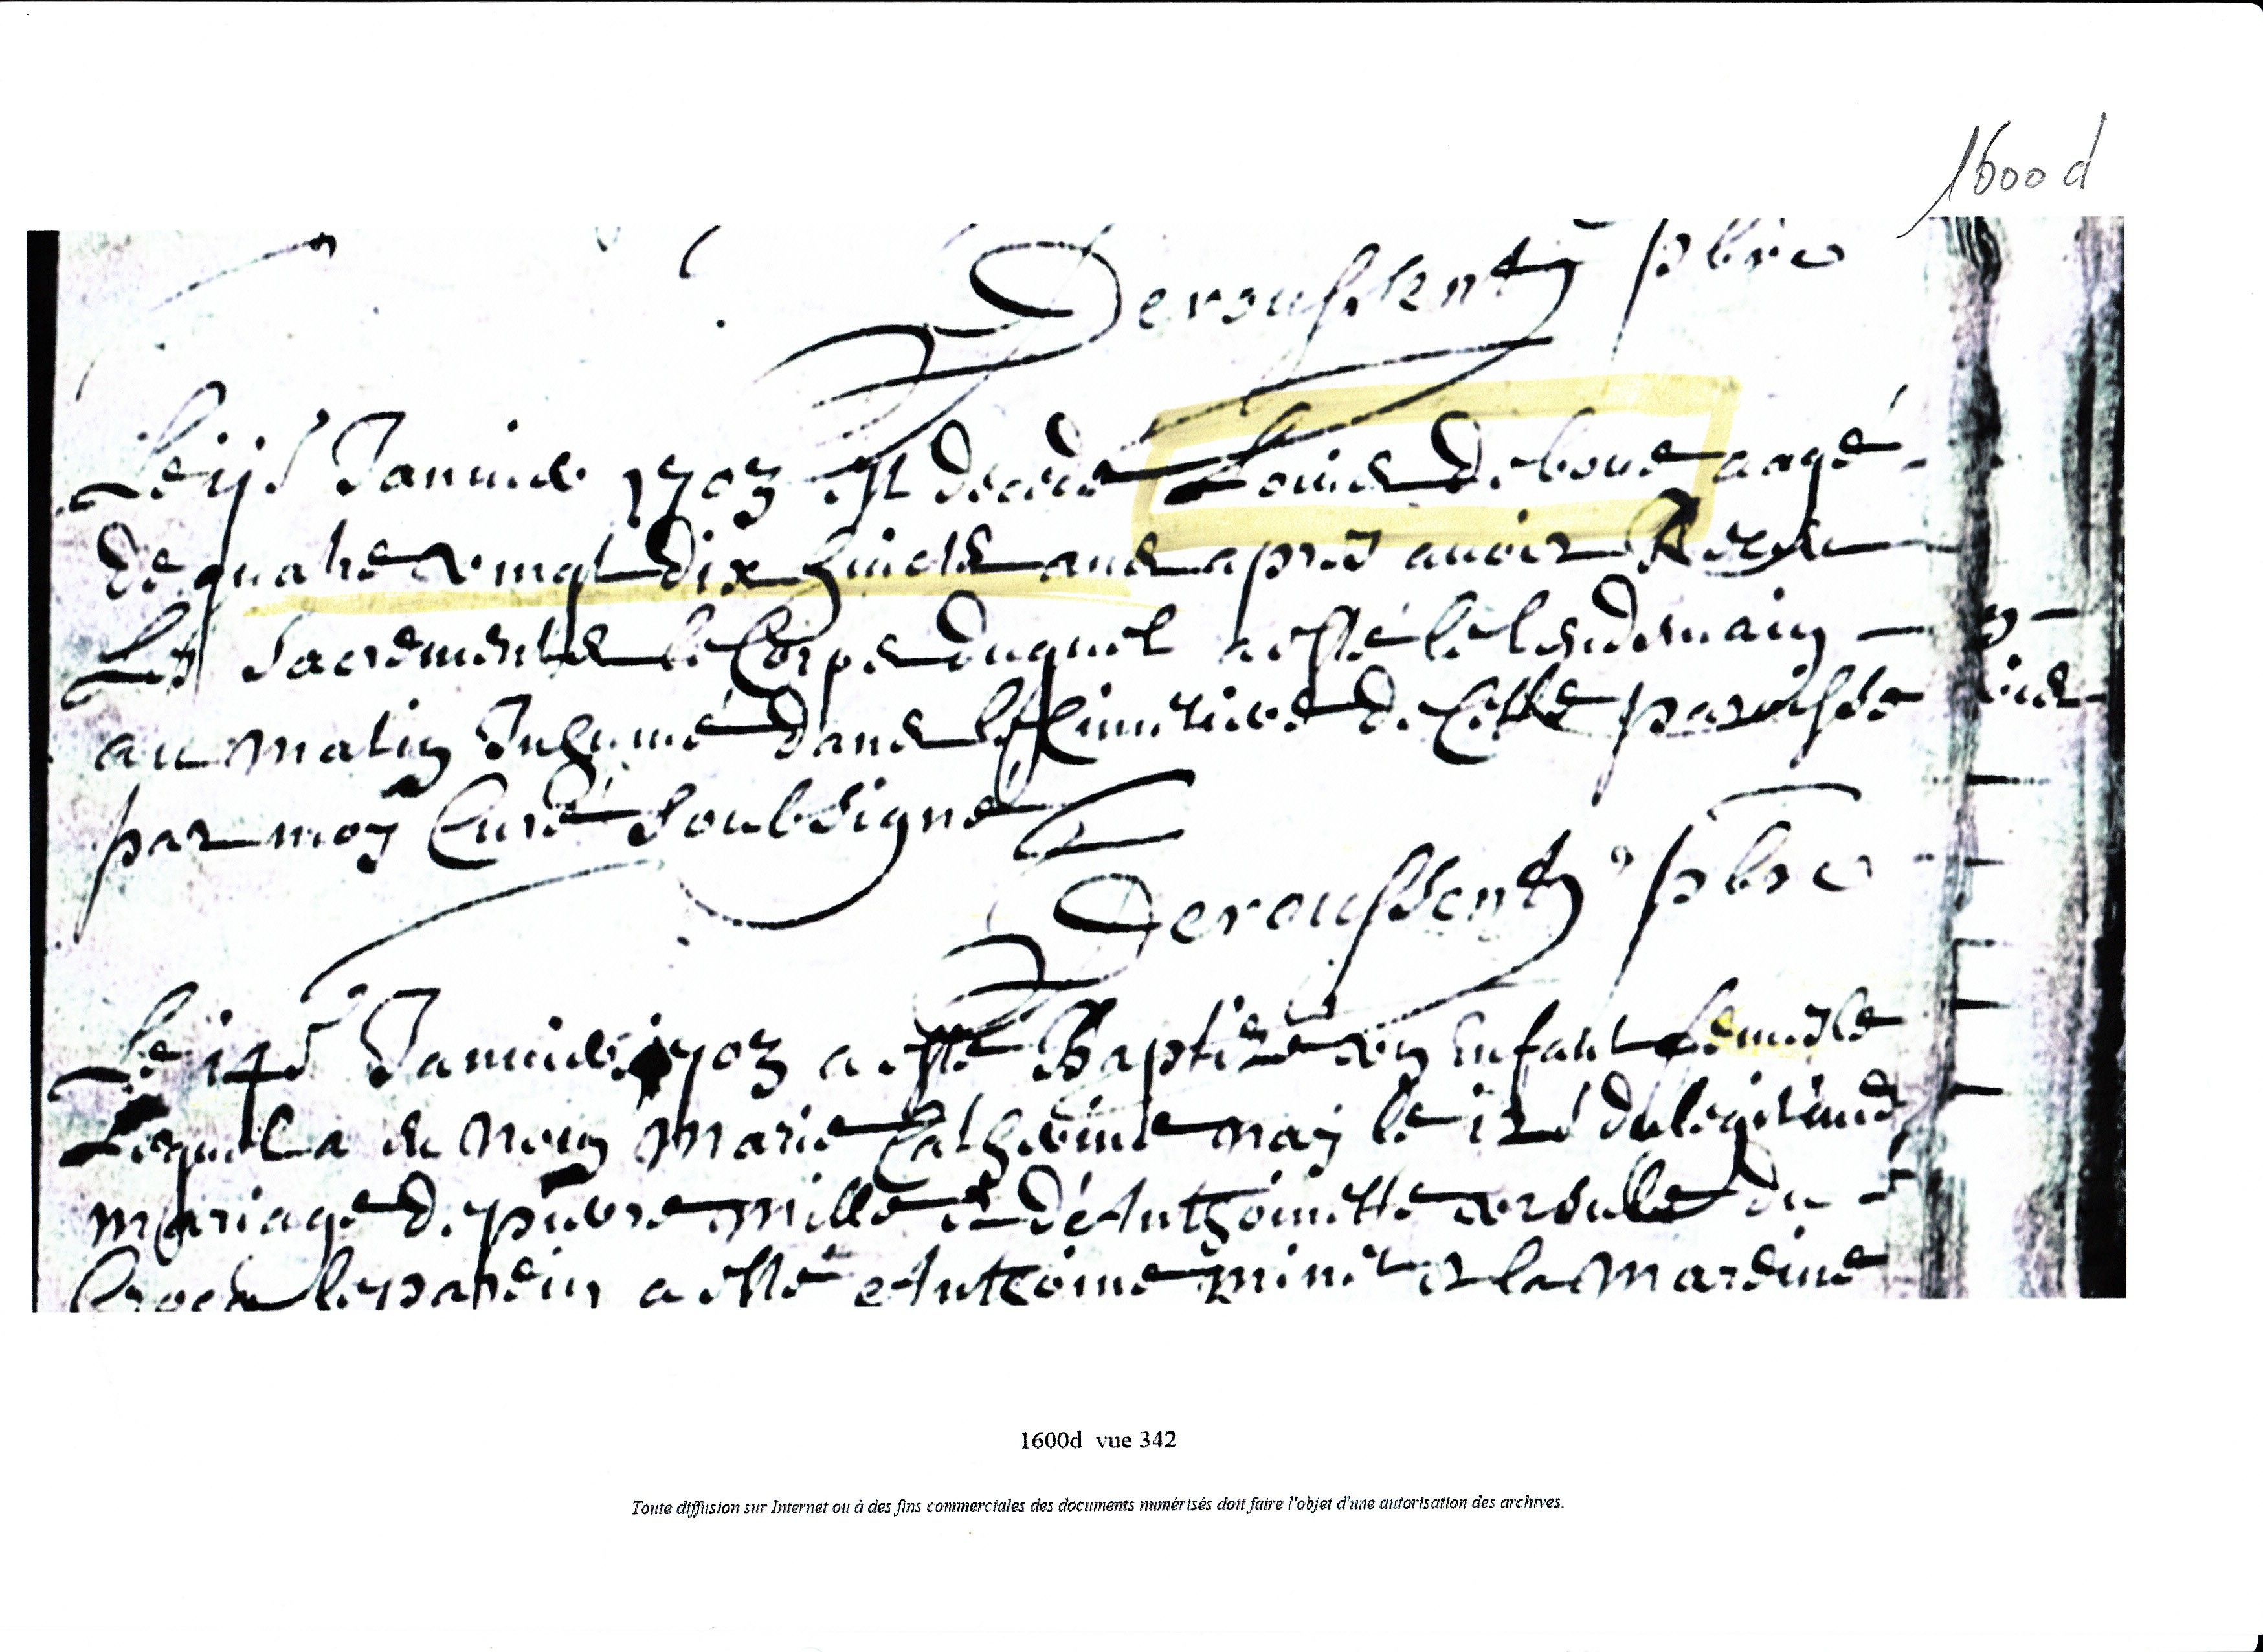 1600 d
Deroussent pbre
Le ije Janvier 1703 est decede Louis Deboue aagé
de quatre vingt dix huicts ans apres avoir Receu
Les Sacrements le Corps duquel a esté le lendemain
au matin Inhumé dans le Cimetiere de Cette paroisse
par moy Curé Soubsigné
Deroussent pbre
Le 14e Janvier 1703 a esté Baptisé un Enfant femelle
Lequel a eu nom Marie Catherine nay le 12e du legitime
mariage de pierre mille et de Anthoinette du
le parein a esté Anthoine et la Mareine
1600d vue 342
Toute diffusion sur Internet ou à des fins commerciales des documents numérisés doit faire l'objet d'une autorisation des archives.